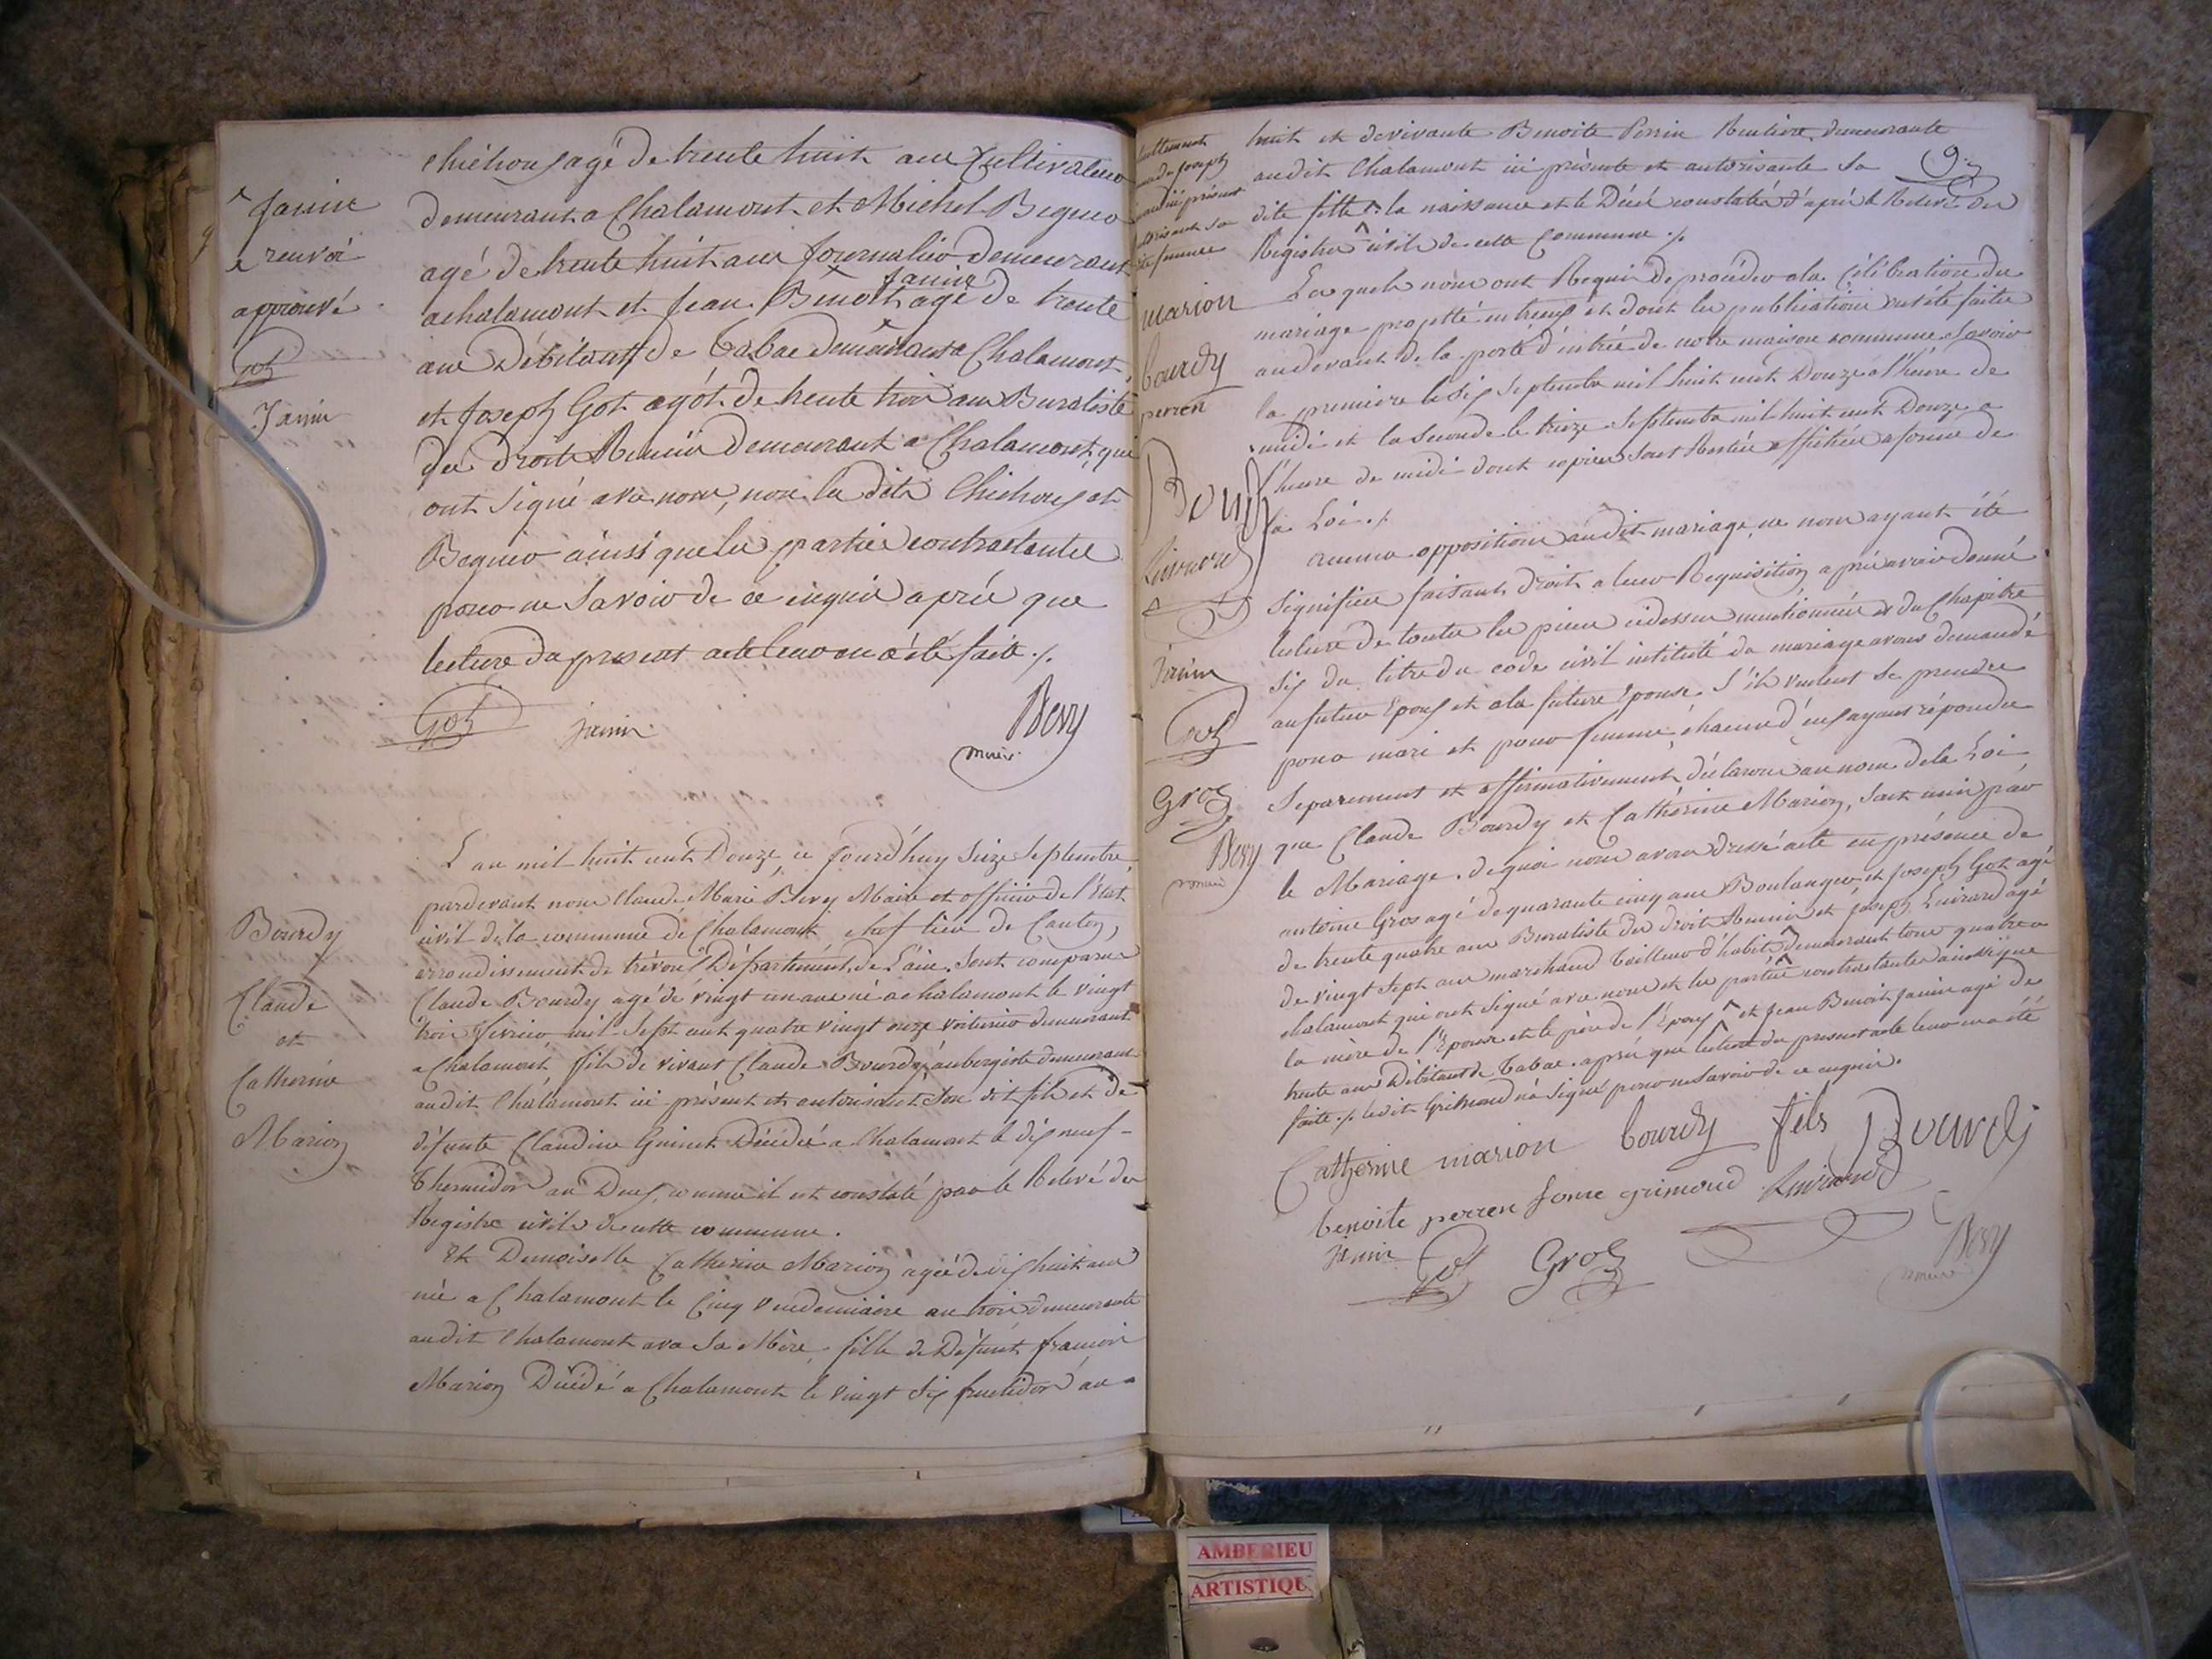 chichoux agé de trente huit ans Cultivateur
demeurant a Chalamont et Michel Begueo
agé de trente huit ans Journalier demeurant
a chalamont et Jean Benoit Janin agé de trente
ans Débitant de Tabac demeurant a Chalamont,
et Joseph Got agé de trente trois ans Buraliste
des droits Réunis demeurant a Chalamont, qui
ont signé avec nous, non les dits Chichoux et
ainsi que les parties contractantes
pour ne savoir de ce enquis après que
lecture du present acte leur en a été faite ./.
Got janin Bevy
maire
^ Janin
e renvoi
approuvé
Got
Janin
L'an mil huit cent Douze, ce jourd'huy seize Septembre
pardevant nous Claude Marie Bevy Maire et officier de l'Etat
civil de la commune de Chalamont chef lieu de Canton,
arrondissement de trévoux Département de L'ain. Sont comparus
Claude Bourdy agé de vingt un ans né a chalamont le vingt
trois fevrier mil sept cent quatre vingt onze voiturier demeurant
a Chalamont fils de vivant Claude Bourdy aubergiste demeurant
audit Chalamont ici présent et autorisant son dit fils et de
défunte Claudine Guinet Décédée a Chalamont le dix neuf
Thermidor an Deux, comme il est constaté par le Relevé des
Registre civils de cette commune.
Et Demoiselle Catherine Marion agée de dix huit ans
née a Chalamont le Cinq vendemiaire an trois demeurante
audit Chalamont avec Sa Mère, fille de Défunt françois
Marion Décédé a Chalamont le vingt six fructidor an
Bourdy
Claude
et
Catherine
Marion
9
huit et de vivante Benoite Perrin Rentiere demeurante
audit Chalamont ici présente et autorisante Sa
dite fille ^ la naissance et le Décé constatés d'après le Relevé des
Registre civils de cette Commune ./.
Lesquels nous ont Requis de procéder a la Célébration du
mariage projetté entr'eux et dont les publications ont été faites
au devant de la porte d'entrée de notre maison commune Savoir
la premiere le six Septembre mil huit cent Douze a l'heure de
midi et la Seconde le treize Septembre mil huit cent Douze a
l'heure de midi dont copies sont Restées affichées a forme de
la Loi ./.
aucune opposition audit mariage, ne nous ayant été
Signifiée faisant droit a leur Requisition après avoir donné
lecture de toutes les pieces cidessus mentionnées et du Chapitre
Six du titre du code civil intitulé du mariage avons demandé
au futur Epoux et a la future Epouse S'ils veulent se prendre
pour mari et pour femme, chacun d'eux ayant répondu
Séparément et affirmativement, déclarons au nom de la Loi
que Claude Bourdy et Cathérine Marion, sont unis par
le Mariage. de quoi nous avons dressé acte en présence de
antoine Gros agé de quarante cinq ans Boulanger et Joseph Got agé
de trente quatre ans Buraliste des droits Réunis et Joseph Luivrard agé
de vingt Sept ans marchand tailleur d'habits demeurant tous quatre a
chalamont qui ont Signé avec nous et les parties contractantes ainsi que
la mère de l'Epouse et le père de l'Epoux ^ et Jean Benoit Janin agé de
trente ans Débitant de Tabac. après que lecture du present acte leur en a été
faite ./. ledit Grimond n'a signé pour ne Savoir de ce enquis.
Catherine marion bourdy fils Bourdy
benoite perren fome grimoud
janin Got Groz Bevy
maire
ici présent
marion
bourdy
perren
Bourdy
Janin
Got
Groz
Bevy
maire
AMBERIEU
ARTISTIQU